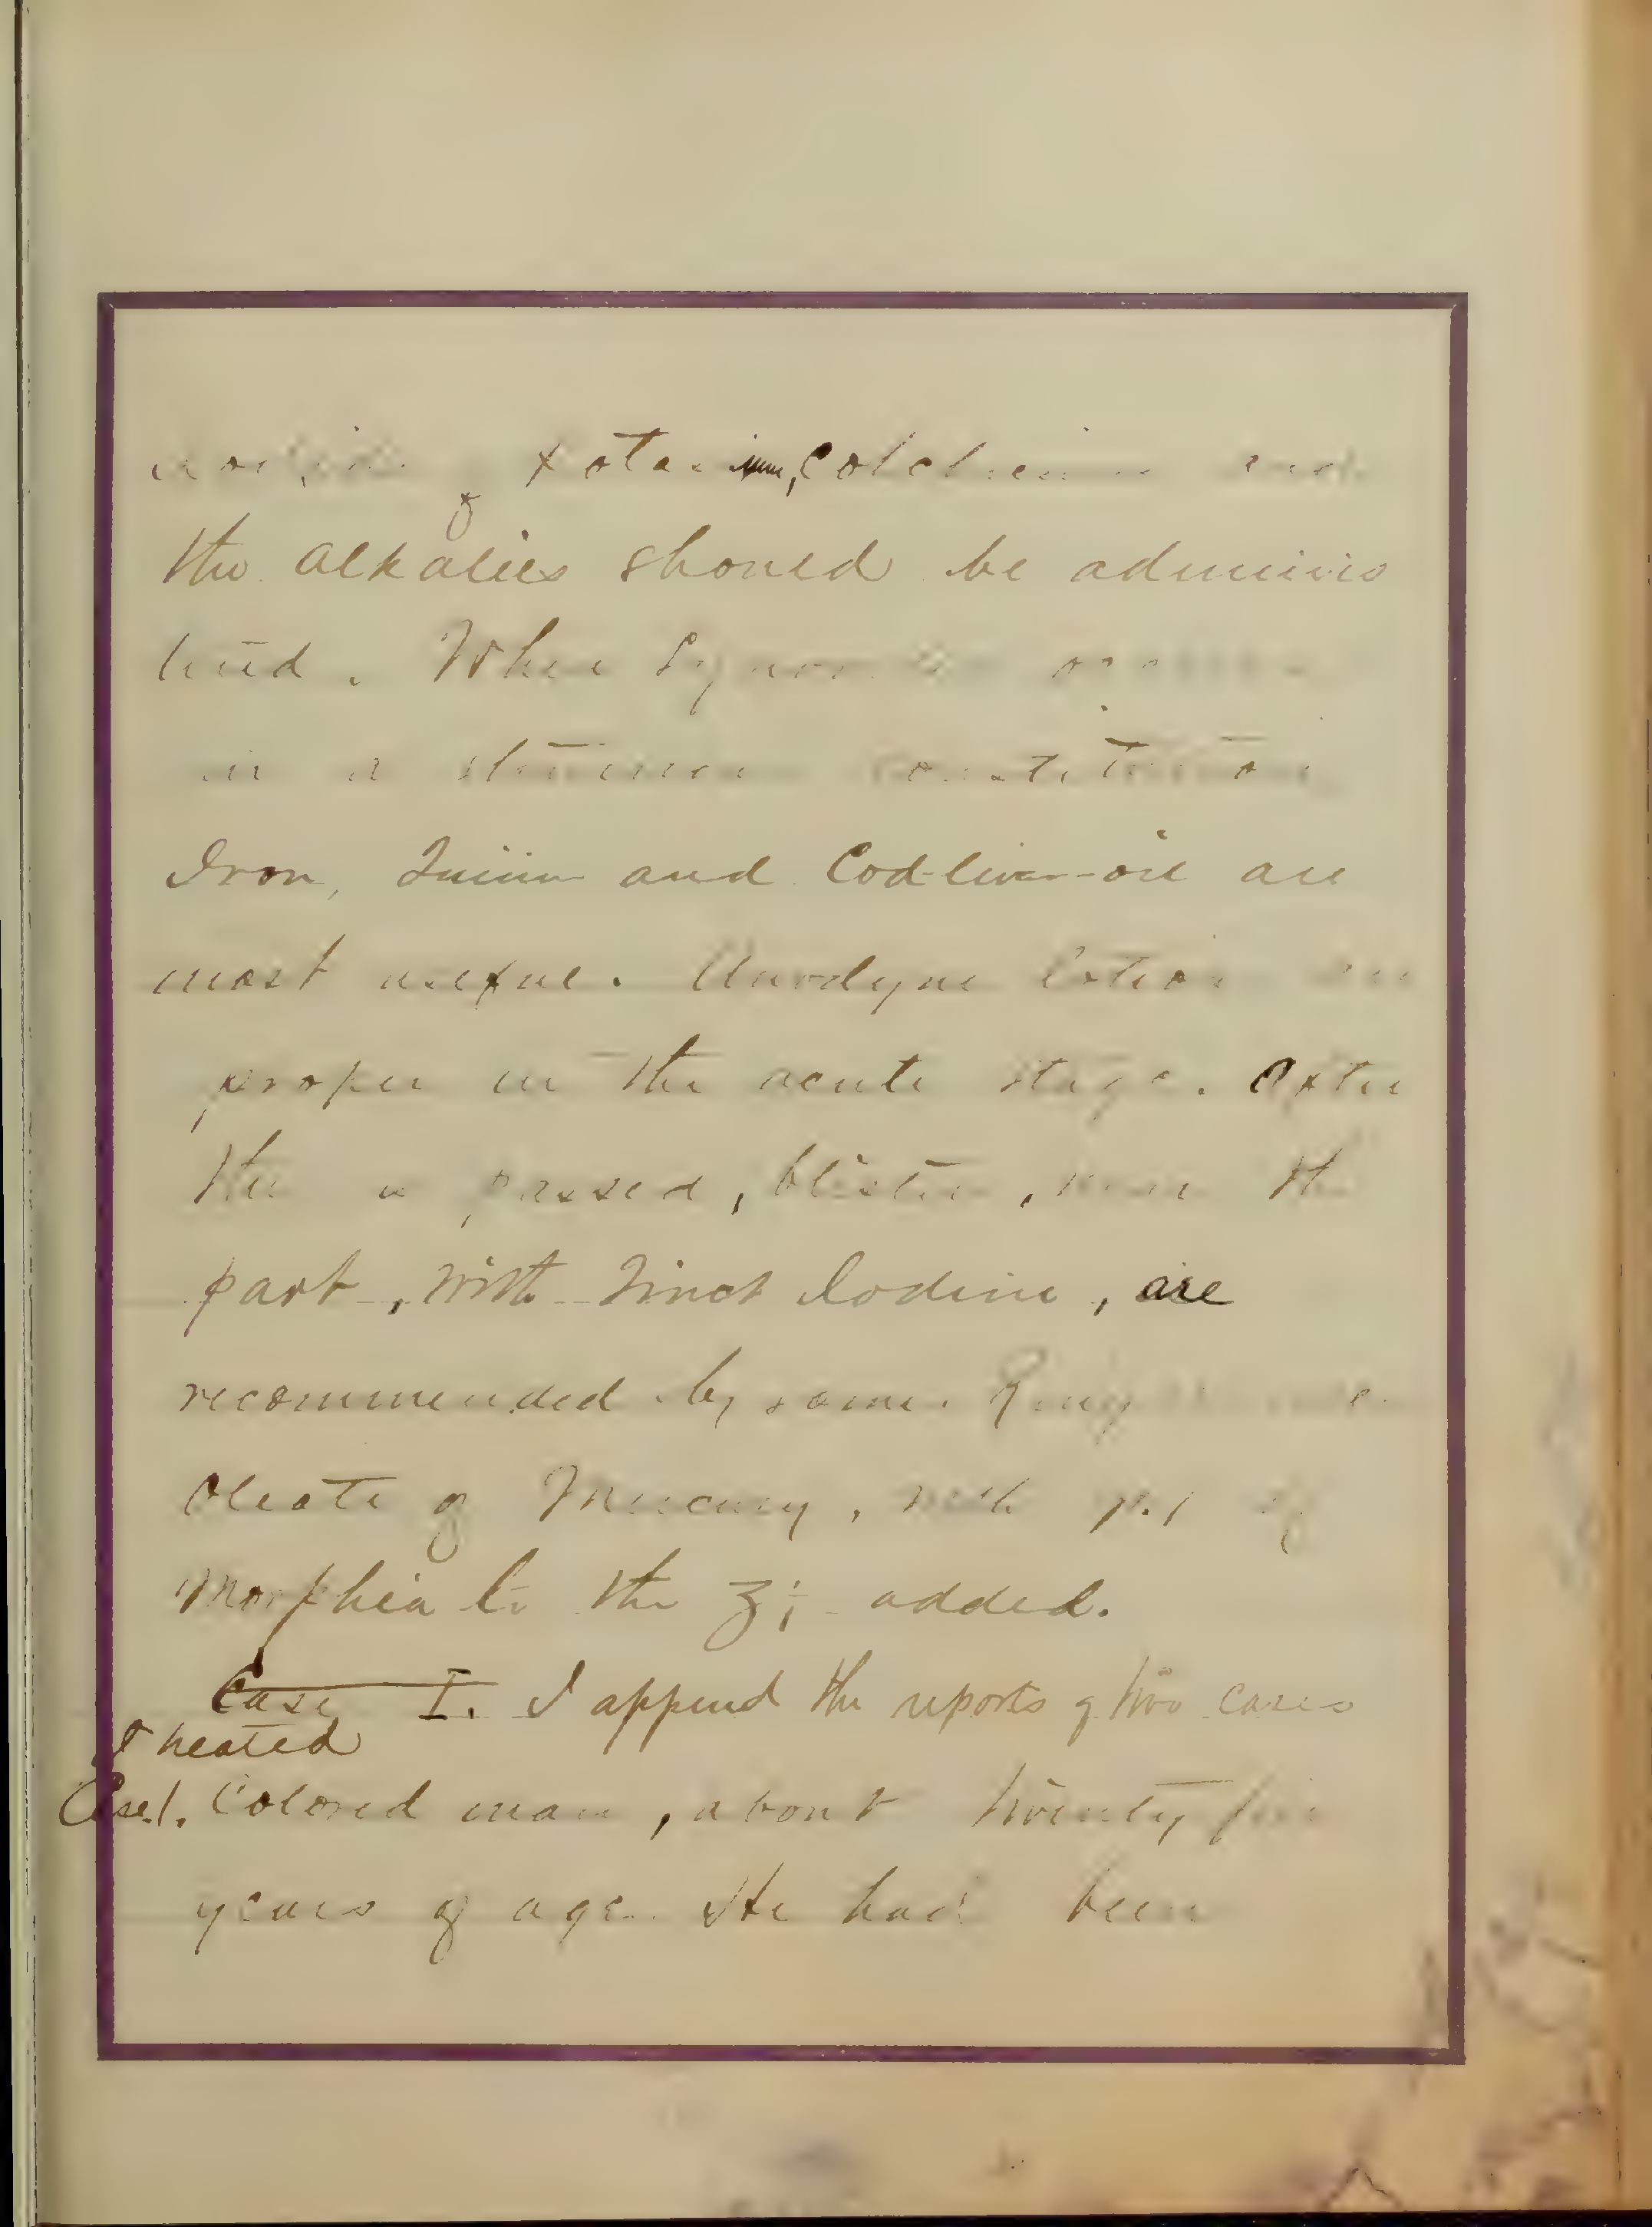 of Potassium, Colchicum and
the alkalies should be adminis
tered. When Synovitis occurs
in a strumous constitution
Iron, Quinine and Cod-liver-oil are
most useful. Anodyne lotions are
proper in the acute stage. After
this is passed, blisters, near the
part, with Tinct Iodine, are
recommended by some.
Oleate of Mercury, with gr.1 of
Morphia to the ʒi added.
Case I. I append the reports of two cases
I treated
Case 1. Colored man, about twenty five
years of age. He had been